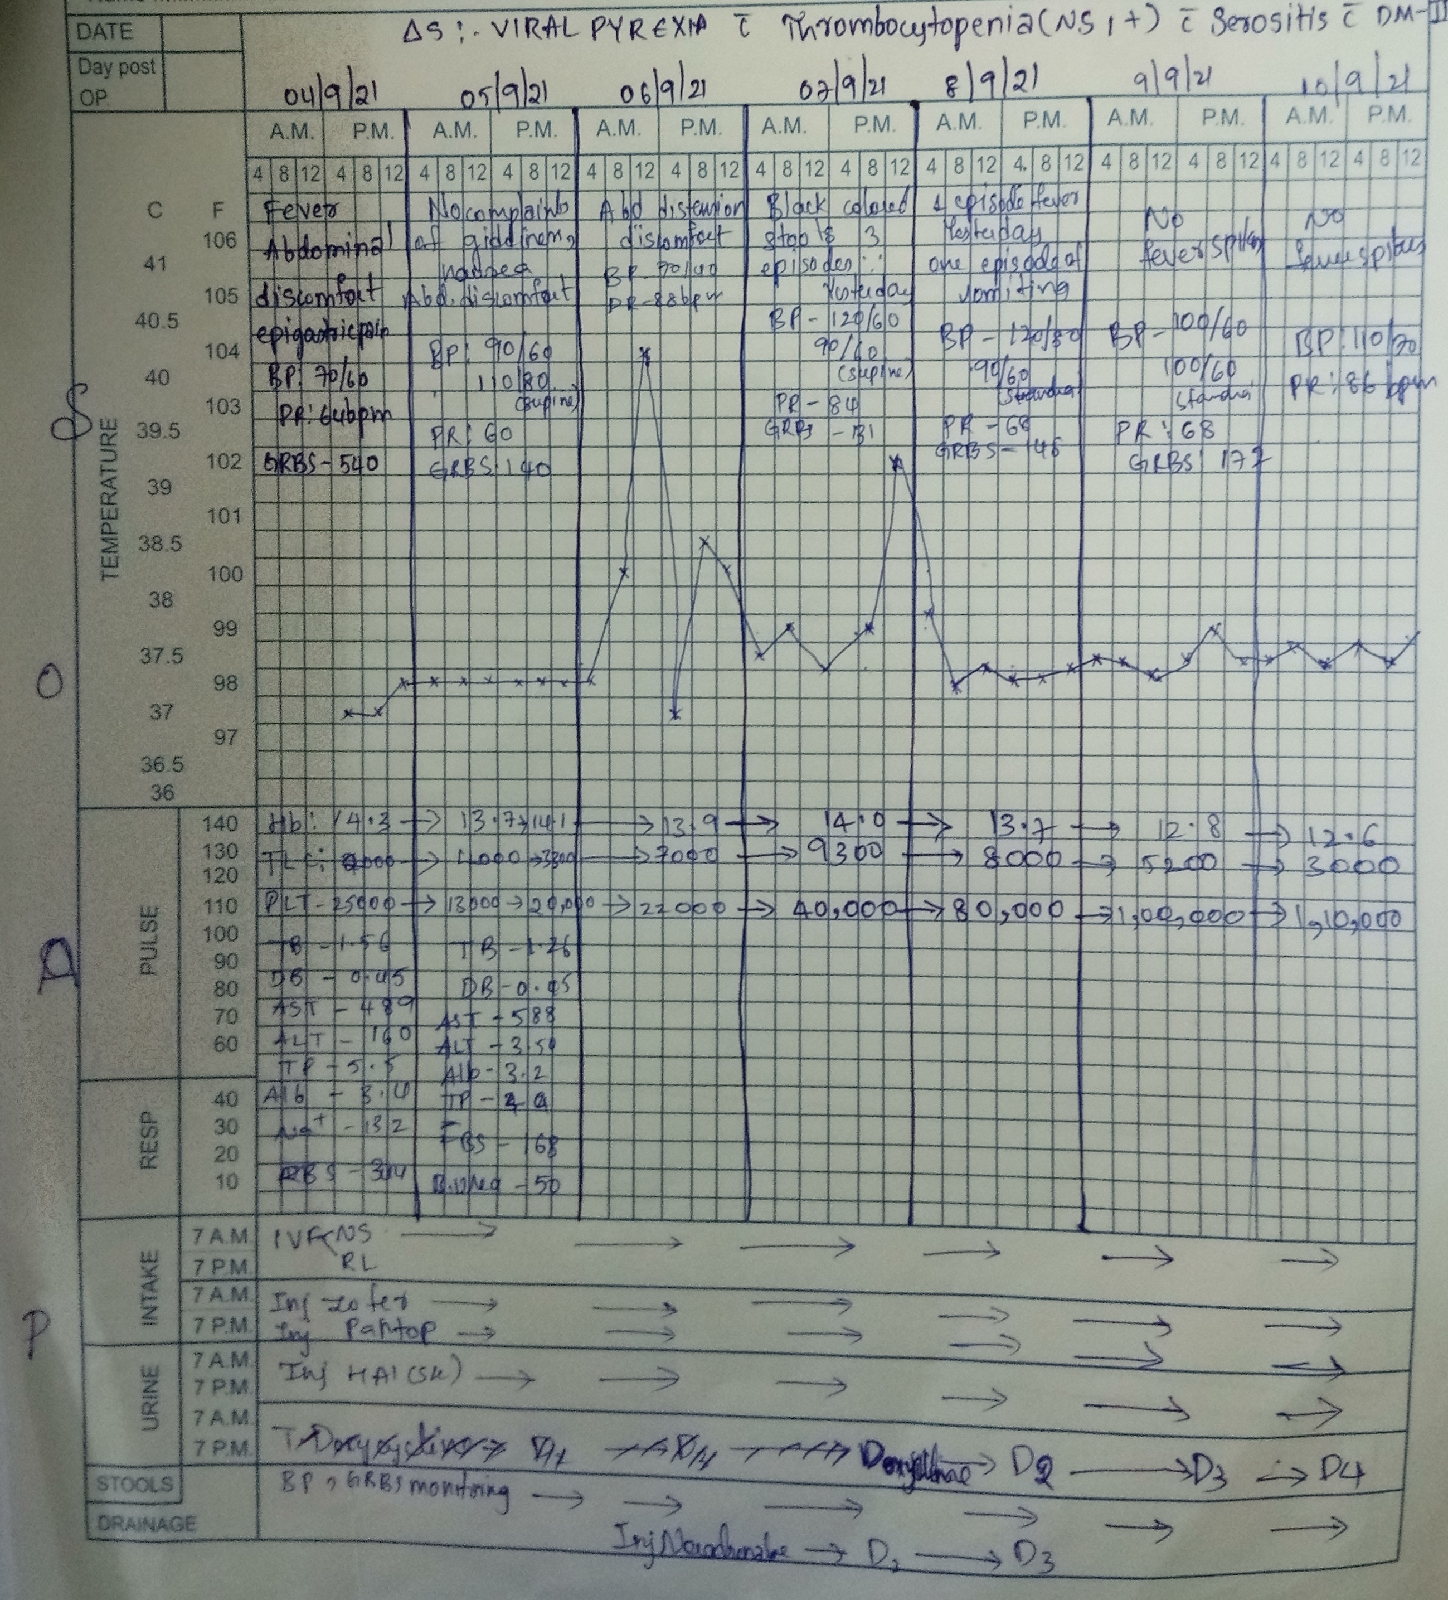 DATE
ΔS :- VIRAL PYREXIA c̄ Thrombocytopenia (NS1+) c̄ Serositis c̄ DM-II
Day post
OP
04/9/21 05/9/21 06/9/21 07/9/21 8/9/21 9/9/21 10/9/21
A.M. P.M. A.M. P.M. A.M. P.M. A.M. P.M. A.M. P.M. A.M. P.M. A.M. P.M.
4 8 12 4 8 12 4 8 12 4 8 12 4 8 12 4 8 12 4 8 12 4 8 12 4 8 12 4 8 12 4 8 12 4 8 12 4 8 12 4 8 12
S
O
A
P
TEMPERATURE
C F
106
41
105
40.5
104
40
103
39.5
102
39
101
38.5
100
38
99
37.5
98
37
97
36.5
36
Fever
Abdominal
discomfort
epigastric pain
BP: 70/60
PR: 64bpm
GRBS-540
No complaints
of giddiness,
nausea
Abd. discomfort
BP: 90/60
110/80
(supine)
PR: 60
GRBS: 140
Abd distension
discomfort
BP
PR-88bpm
Black colored
stools 3
episodes
Yesterday
BP-120/60
90/60
(supine)
PR-84
GRBS
1 episode fever
Yesterday
one episode of
vomiting
BP-
90/60
PR-68
GRBS-
No
fever spikes
BP-100/60
100/60
PR: 68
GRBS 177
No
fever spikes
BP: 110/70
PR: 86 bpm
PULSE
140
130
120
110
100
90
80
70
60
Hb: 14.3 → 13.7 → 14.1 → 13.9 → 14.0 → 13.7 → 12.8 → 12.6
TLC: → 4000 → → 7000 → 9300 → 8000 → 5200 → 3000
PLT-25000 → 13000 → 20,000 → 22000 → 40,000 → 80,000 → 1,00,000 → 1,10,000
TB-1.56 TB-1.26
DB-0.45 DB-0.45
AST-489 AST-588
ALT-160 ALT-
TP-5.5 Alb-3.2
Alb-3.4 TP-
Na⁺-132 FBS-168
RBS- B.urea-50
RESP
40
30
20
10
INTAKE
7 A.M.
7 P.M.
7 A.M.
7 P.M.
IVF NS → → → → → →
RL
Inj Zofer → → → → → →
Inj Pantop → → → → → →
URINE
7 A.M.
7 P.M.
7 A.M.
7 P.M.
Inj HAI (SC) → → → → → →
T. Doxycycline
→ D2 → D3 → D4
STOOLS
BP, GRBS monitoring → → → → → →
DRAINAGE
Inj Noradrenaline → → D3